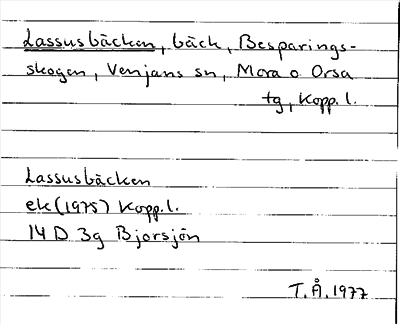 Lassusbäcken, bäck, Besparings-
skogen, Venjans sn, Mora o Orsa
tg, Kopp. l.
Lassusbäcken
ek (1975) Kopp. l.
14 D 3g Bjorsjön
T. Å. 1977